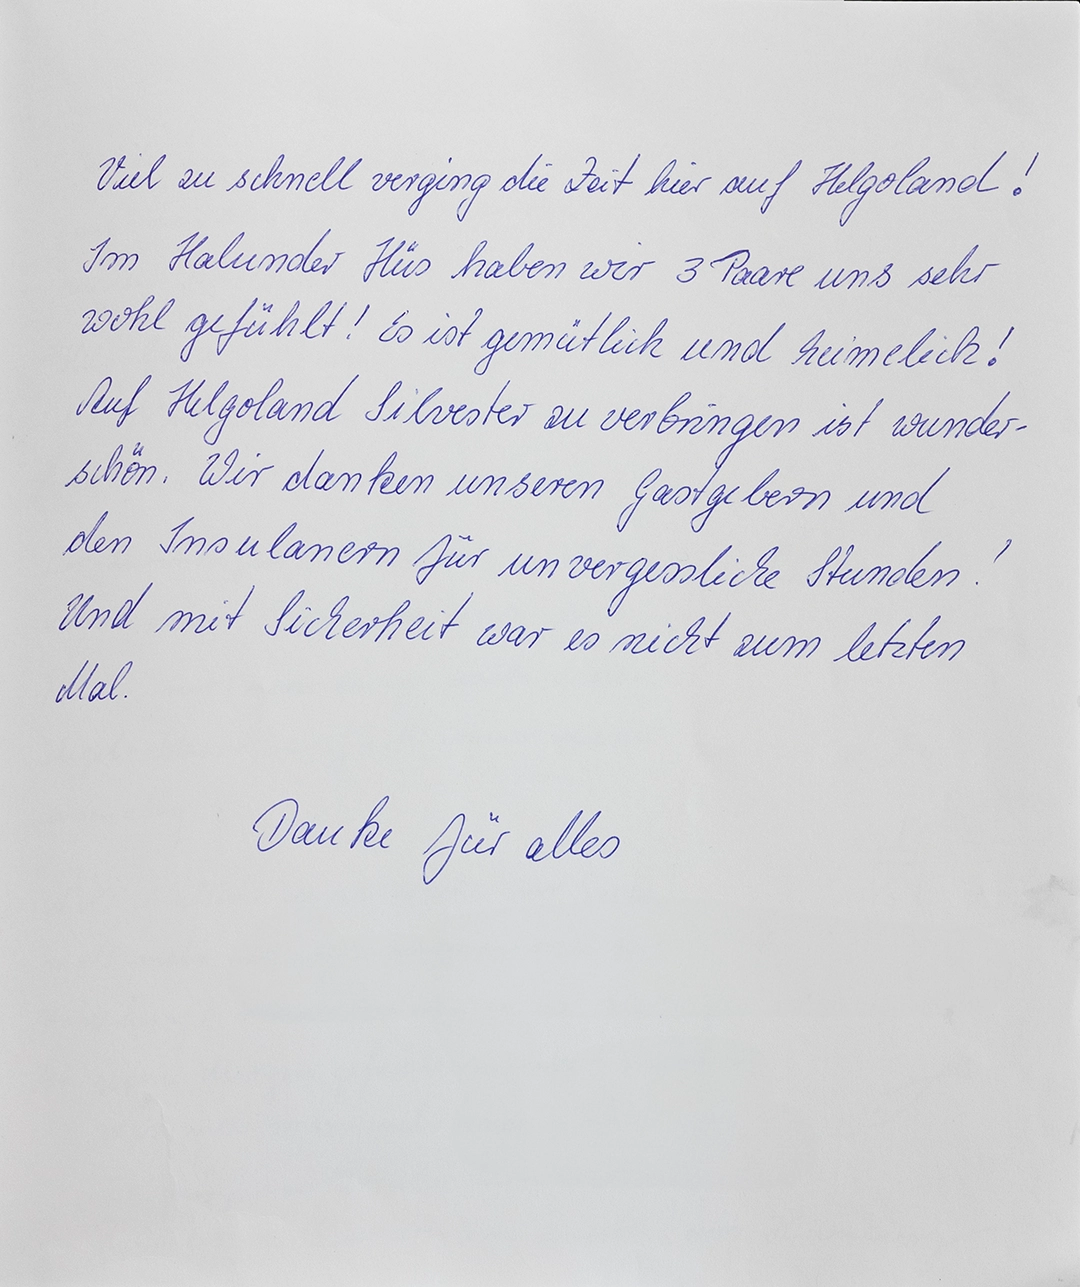 Viel zu schnell verging die Zeit hier auf Helgoland!
Im Halunder Hüs haben wir 3 Paare uns sehr
wohl gefühlt! Es ist gemütlich und heimelich!
Auf Helgoland Silvester zu verbringen ist wunder-
schön. Wir danken unseren Gastgebern und
den Insulanern für unvergessliche Stunden!
Und mit Sicherheit war es nicht zum letzten
Mal.
Danke für alles